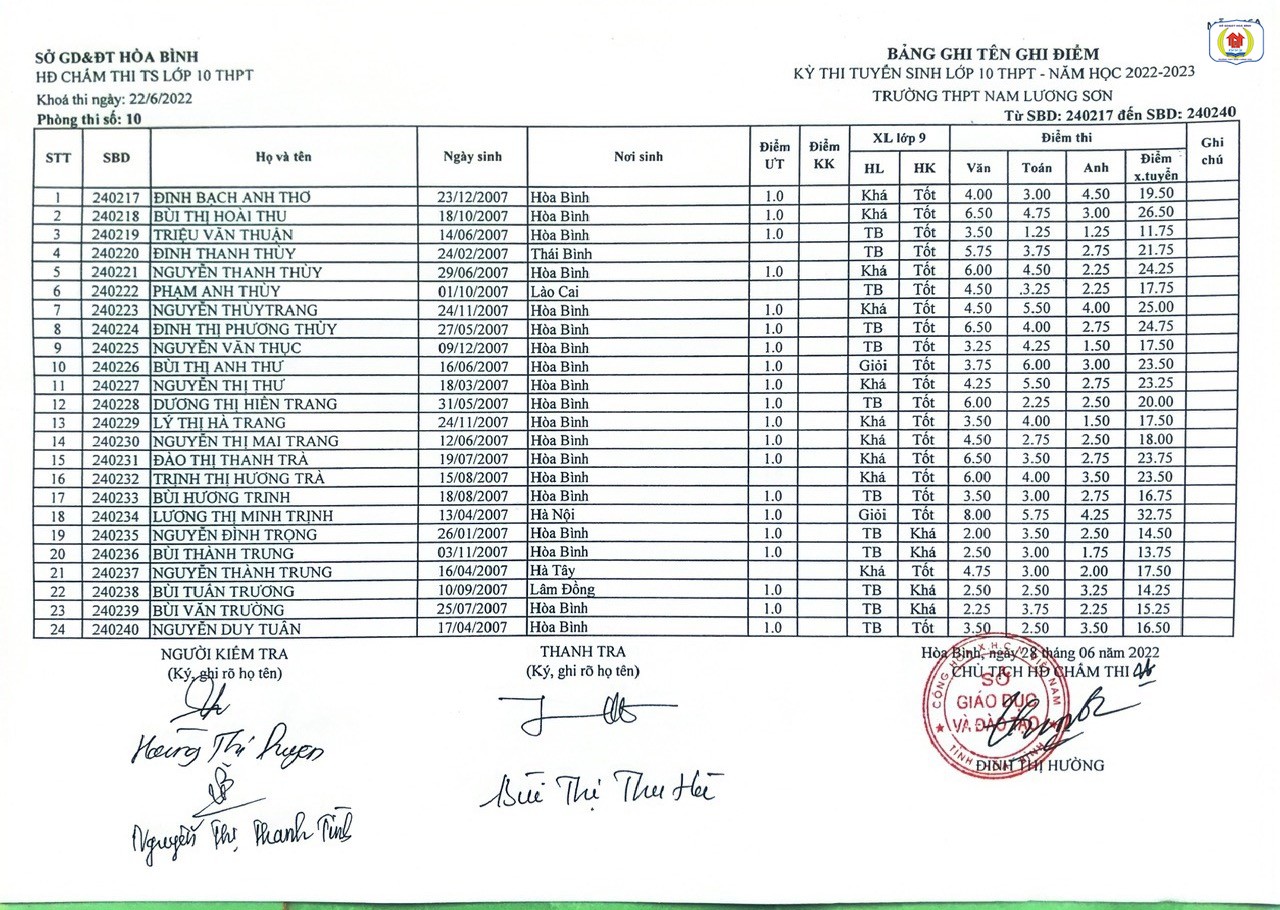 SỞ GD&ĐT HÒA BÌNH
HĐ CHẤM THI TS LỚP 10 THPT
Khoá thi ngày: 22/6/2022
Phòng thi số: 10
BẢNG GHI TÊN GHI ĐIỂM
KỲ THI TUYỂN SINH LỚP 10 THPT - NĂM HỌC 2022-2023
TRƯỜNG THPT NAM LƯƠNG SƠN
Từ SBD: 240217 đến SBD: 240240
STT SBD Họ và tên Ngày sinh Nơi sinh Điểm ƯT Điểm KK XL lớp 9 Điểm thi Ghi chú
HL HK Văn Toán Anh Điểm x.tuyển
1 240217 ĐINH BẠCH ANH THƠ 23/12/2007 Hòa Bình 1.0 Khá Tốt 4.00 3.00 4.50 19.50
2 240218 BÙI THỊ HOÀI THU 18/10/2007 Hòa Bình 1.0 Khá Tốt 6.50 4.75 3.00 26.50
3 240219 TRIỆU VĂN THUẬN 14/06/2007 Hòa Bình 1.0 TB Tốt 3.50 1.25 1.25 11.75
4 240220 ĐINH THANH THÙY 24/02/2007 Thái Bình TB Tốt 5.75 3.75 2.75 21.75
5 240221 NGUYỄN THANH THÙY 29/06/2007 Hòa Bình 1.0 Khá Tốt 6.00 4.50 2.25 24.25
6 240222 PHẠM ANH THÙY 01/10/2007 Lào Cai TB Tốt 4.50 3.25 2.25 17.75
7 240223 NGUYỄN THÙYTRANG 24/11/2007 Hòa Bình 1.0 Khá Tốt 4.50 5.50 4.00 25.00
8 240224 ĐINH THỊ PHƯƠNG THÙY 27/05/2007 Hòa Bình 1.0 TB Tốt 6.50 4.00 2.75 24.75
9 240225 NGUYỄN VĂN THỤC 09/12/2007 Hòa Bình 1.0 TB Tốt 3.25 4.25 1.50 17.50
10 240226 BÙI THỊ ANH THƯ 16/06/2007 Hòa Bình 1.0 Giỏi Tốt 3.75 6.00 3.00 23.50
11 240227 NGUYỄN THỊ THƯ 18/03/2007 Hòa Bình 1.0 Khá Tốt 4.25 5.50 2.75 23.25
12 240228 DƯƠNG THỊ HIỀN TRANG 31/05/2007 Hòa Bình 1.0 TB Tốt 6.00 2.25 2.50 20.00
13 240229 LÝ THỊ HÀ TRANG 24/11/2007 Hòa Bình 1.0 Khá Tốt 3.50 4.00 1.50 17.50
14 240230 NGUYỄN THỊ MAI TRANG 12/06/2007 Hòa Bình 1.0 Khá Tốt 4.50 2.75 2.50 18.00
15 240231 ĐÀO THỊ THANH TRÀ 19/07/2007 Hòa Bình 1.0 Khá Tốt 6.50 3.50 2.75 23.75
16 240232 TRỊNH THỊ HƯƠNG TRÀ 15/08/2007 Hòa Bình Khá Tốt 6.00 4.00 3.50 23.50
17 240233 BÙI HƯƠNG TRINH 18/08/2007 Hòa Bình 1.0 TB Tốt 3.50 3.00 2.75 16.75
18 240234 LƯƠNG THỊ MINH TRỊNH 13/04/2007 Hà Nội 1.0 Giỏi Tốt 8.00 5.75 4.25 32.75
19 240235 NGUYỄN ĐÌNH TRỌNG 26/01/2007 Hòa Bình 1.0 TB Khá 2.00 3.50 2.50 14.50
20 240236 BÙI THÀNH TRUNG 03/11/2007 Hòa Bình 1.0 TB Khá 2.50 3.00 1.75 13.75
21 240237 NGUYỄN THÀNH TRUNG 16/04/2007 Hà Tây Khá Tốt 4.75 3.00 2.00 17.50
22 240238 BÙI TUẤN TRƯƠNG 10/09/2007 Lâm Đồng 1.0 TB Khá 2.50 2.50 3.25 14.25
23 240239 BÙI VĂN TRƯỜNG 25/07/2007 Hòa Bình 1.0 TB Khá 2.25 3.75 2.25 15.25
24 240240 NGUYỄN DUY TUẤN 17/04/2007 Hòa Bình 1.0 TB Tốt 3.50 2.50 3.50 16.50
NGƯỜI KIỂM TRA
(Ký, ghi rõ họ tên)
Nguyễn Thị Thanh Tình
THANH TRA
(Ký, ghi rõ họ tên)
Bùi Thị Thu Hà
Hòa Bình, ngày 28 tháng 06 năm 2022
CHỦ TỊCH HĐ CHẤM THI
SỞ
GIÁO DỤC
VÀ ĐÀO TẠO
ĐINH THỊ HƯỜNG